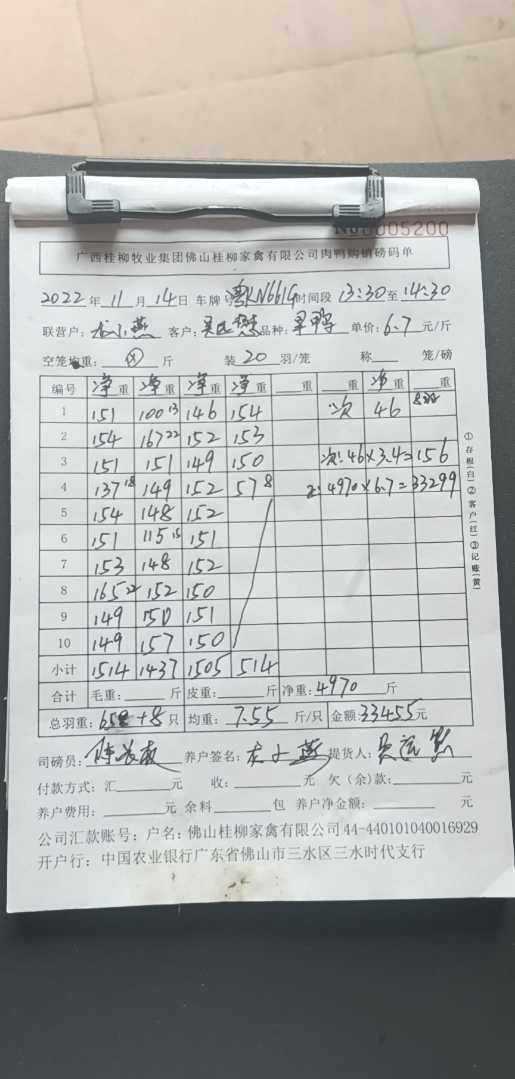 No 0005200
广西桂柳牧业集团佛山桂柳家禽有限公司肉鸭购销磅码单
2022年 11月 14日 车牌号 粤KN661G 时间段 13:30至14:30
联营户: 客户: 品种: 单价: 6.7元/斤
空笼 重: 斤 装20羽/笼 称 笼/磅
编号 净重 净重 净重 净重 重 重 净重 重
1 151 100 13 146 154 次 46
2 154 167 22 152 153
3 151 151 149 150 次:46×3.4=156
4 137 18 149 152 57 8 4970×6.7=33299
5 154 148 152
6 151 115 15 151
7 153 148 152
8 165 22 152 150
9 149 150 151
10 149 157 150
小计 1514 1437 1505 514
合计 毛重: 斤 皮重: 斤 净重:4970 斤
总羽重: 658+8只 均重: 7.55 斤/只 金额:33455元
司磅员: 养户签名: 提货人:
付款方式: 汇 元 收: 元 欠(余)款: 元
养户费用: 元 余料 包 养户净金额: 元
公司汇款账号: 户名: 佛山桂柳家禽有限公司44-440101040016929
开户行: 中国农业银行广东省佛山市三水区三水时代支行
①存根(白)②客户(红)③记账(黄)